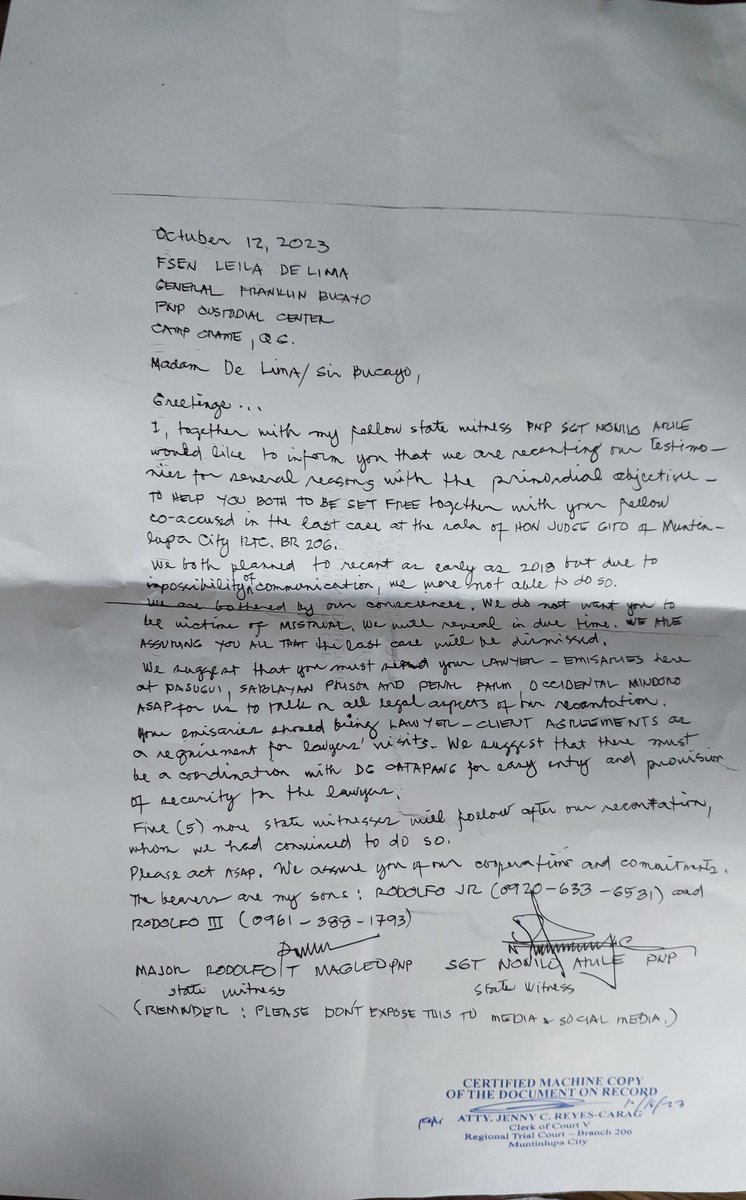 October 12, 2023
FSEN LEILA DE LIMA
GENERAL FRANKLIN BUCAYO
PNP CUSTODIAL CENTER
CAMP CRAME, Q.C.
Madam De Lima/Sir Bucayo,
Greetings...
I, together with my fellow state witness PNP SGT NONILO ARILE
would like to inform you that we are recanting our testimo-
nies for several reasons with the primordial objective -
TO HELP YOU BOTH TO BE SET FREE together with your fellow
co-accused in the last case at the sala of HON JUDGE GITO of Muntin-
lupa City RTC. BR 206.
We both planned to recant as early as 2018 but due to
impossibility of communication, we were not able to do so.
We are bothered by our consciences. We do not want you to
be victims of MISTRIAL. We will reveal in due time. WE ARE
ASSURING YOU ALL THAT the last case will be dismissed.
We suggest that you must send your LAWYER - EMISARIES here
at PASUGUI, SABLAYAN PRISON AND PENAL FARM, OCCIDENTAL MINDORO
ASAP for us to talk on all legal aspects of our recantation.
Your emisaries should bring LAWYER - CLIENT AGREEMENTS as
a requirement for lawyers' visits. We suggest that there must
be a coordination with DG CATAPANG for easy entry and provision
of security for the lawyers.
Five (5) more state witnesses will follow after our recantation,
whom we had convinced to do so.
Please act ASAP. We assure you of our cooperations and commitments.
The bearers are my sons: RODOLFO JR (0920-633-6531) and
RODOLFO III (0961-388-1793)
MAJOR RODOLFO T MAGLEO PNP SGT NONILO ARILE PNP
State Witness State Witness
(REMINDER: PLEASE DON'T EXPOSE THIS TO MEDIA & SOCIAL MEDIA.)
CERTIFIED MACHINE COPY
OF THE DOCUMENT ON RECORD
ATTY. JENNY C. REYES-CARAG
Clerk of Court V
Regional Trial Court - Branch 206
Muntinlupa City